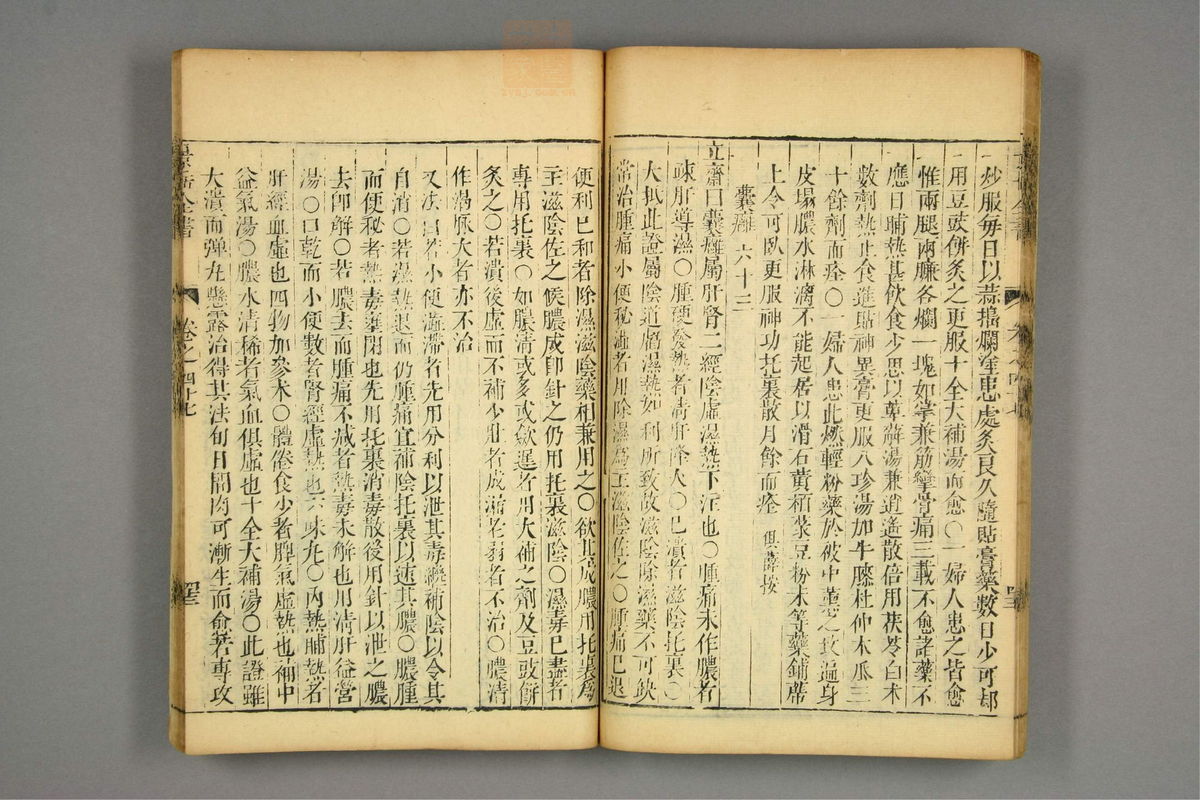 炒服每日以蒜搗爛塗患處灸良久隨貼膏藥數日少可却
用豆豉餅灸之更服十全大補湯而愈〇一婦人患之皆愈
惟兩腿兩臁各爛一塊如掌兼筋攣骨痛三載不愈諸藥不
應日晡熱甚飲食少思以萆薢湯兼逍遙散倍用茯苓白术
數劑熱止食進貼神異膏更服八珍湯加牛膝杜仲木瓜三
十餘劑而痊〇一婦人患此燃輕粉藥於被中薰之致遍身
皮塌膿水淋漓不能起居以滑石黃栢菉豆粉末等藥鋪席
上令可臥更服神功托裏散月餘而痊 俱薛按
囊癰 六十三
立齋曰囊癰屬肝腎二經陰虛濕熱下注也〇腫痛未作膿者
疎肝導濕〇腫硬發熱者清肝降火〇已潰者滋陰托裏〇
大抵此證屬陰道虧濕熱不利所致故滋陰除濕藥不可缺
常治腫痛小便秘澁者用除濕為主滋陰佐之〇腫痛已退
便利已和者除濕滋陰藥相兼用之〇欲其成膿用托裏為
主滋陰佐之候膿成即針之仍用托裏滋陰〇濕毒已盡者
專用托裏〇如膿清或多或歛遲者用大補之劑及豆豉餅
灸之〇若潰後虛而不補少壯者成漏老弱者不治〇膿清
作渴脉大者亦不治
又法曰若小便澁滯者先用分利以泄其毒繼補陰以令其
自消〇若濕熱退而仍腫痛宜補陰托裏以速其膿〇膿腫
而便秘者熱毒壅閉也先用托裏消毒散後用針以泄之膿
去即解〇若膿去而腫痛不減者熱毒未解也用清肝益營
湯〇口乾而小便數者腎經虛熱也六味丸〇內熱晡熱者
肝經血虛也四物加參术〇體倦食少者脾氣虛熱也補中
益氣湯〇膿水清稀者氣血俱虛也十全大補湯〇此證雖
大潰而彈丸懸露治得其法旬日間肉可漸生而愈若專攻
景岳全書 卷之四十七